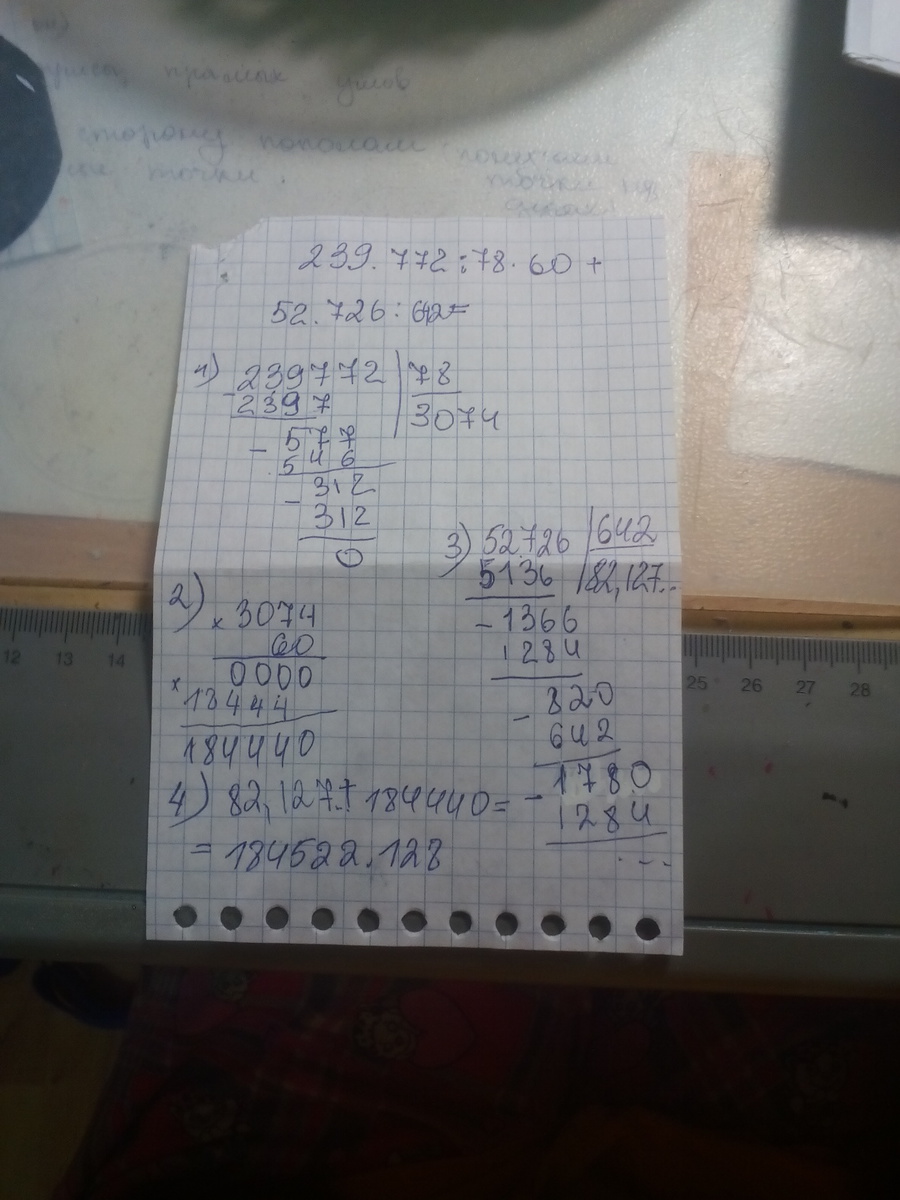 прямых углов
сторону пополам
точки.
точки
239.772:78.60+
52.726:642=
1) 239772 78
- 2397 3074
- 577
546
- 312
312
0
3) 52.726 642
5136 82,127...
- 1366
1284
- 820
642
- 1780
1284
...
2)
× 3074
60
× 0000
18444
184440
4) 82,127..+184440=
= 184522.128
12 13 14 25 26 27 28